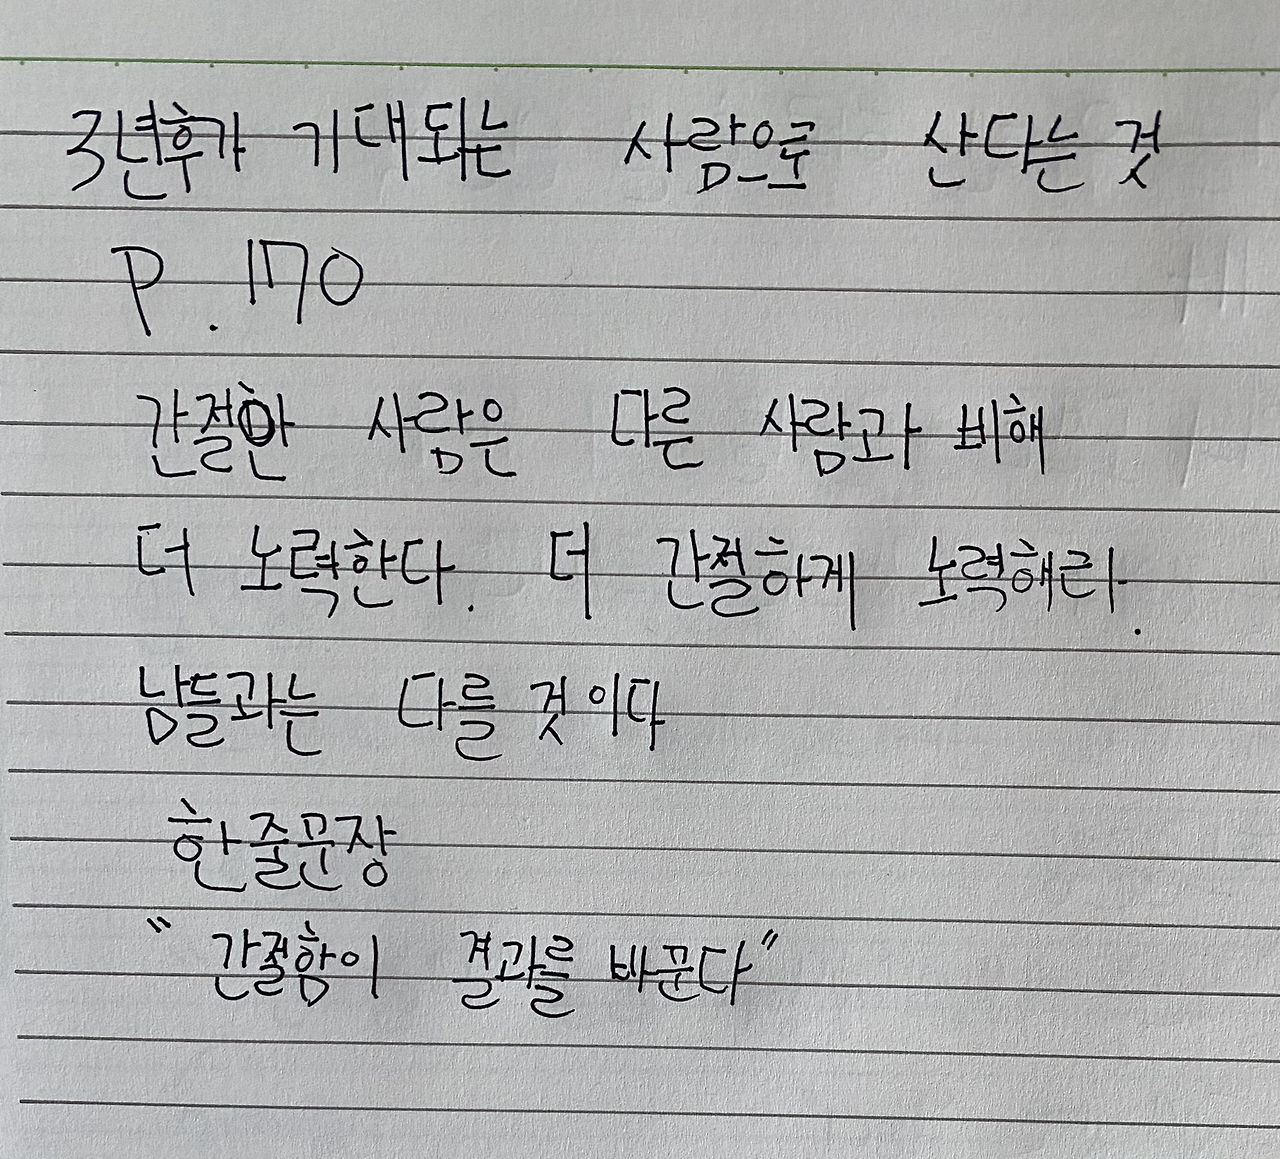 3년후가 기대되는 사람으로 산다는 것
P. 170
간절한 사람은 다른 사람과 비해
더 노력한다. 더 간절하게 노력해라.
남들과는 다를 것이다
한줄문장
"간절함이 결과를 바꾼다"